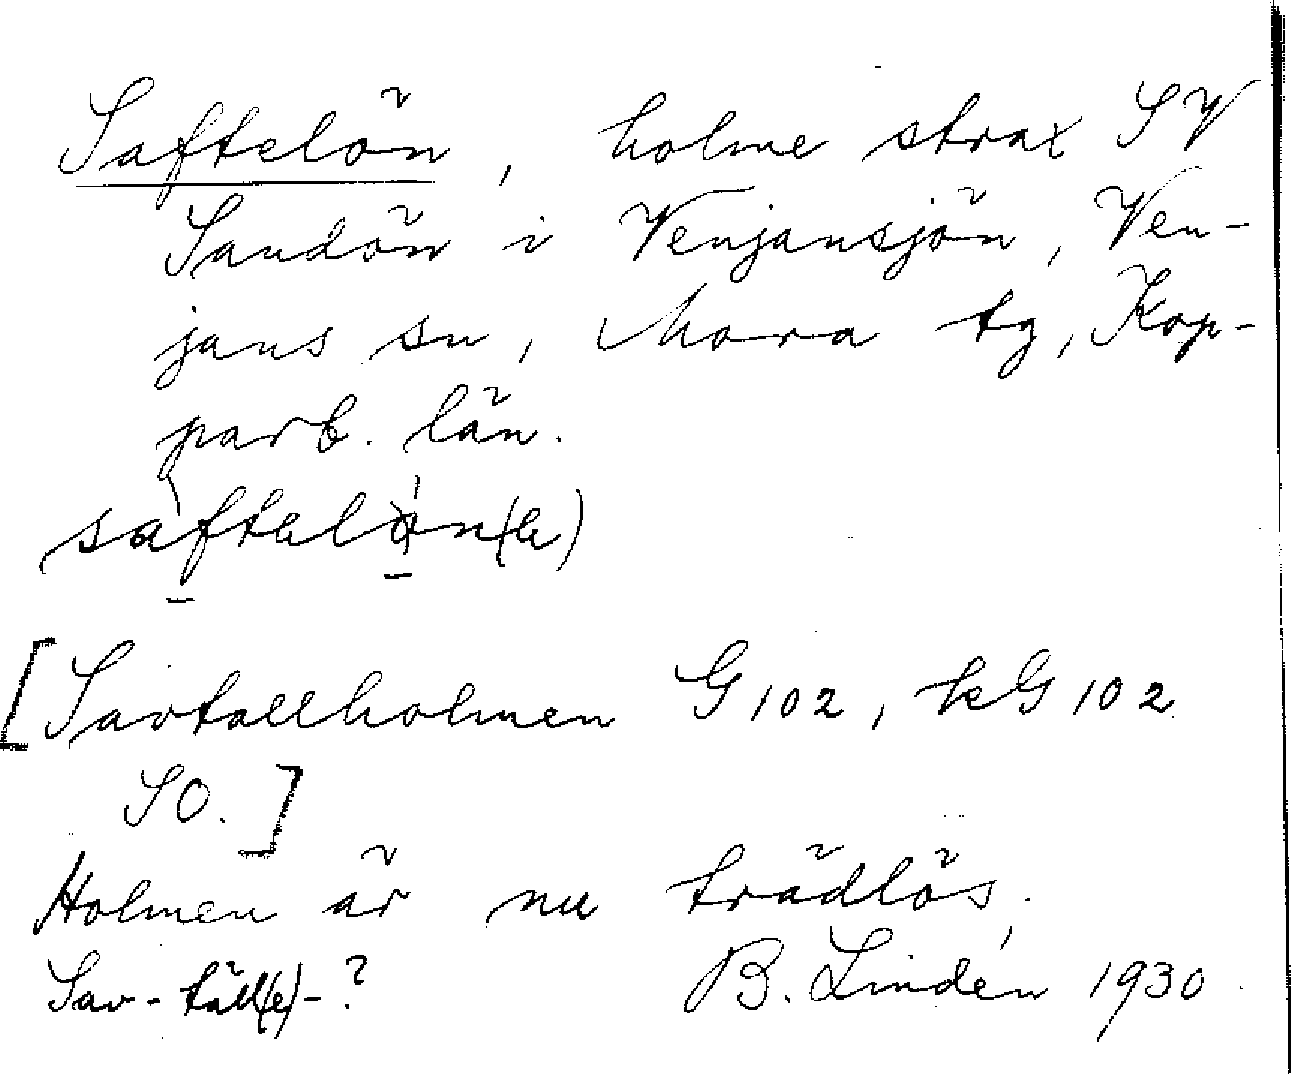 Saftelön, holme strax SV
Sandön i Venjansjön, Ven-
jans sn, Mora tg, Kop-
parb. län.
sàftelǿn(e)
[Savtallholmen G102, kG102
SO.]
Holmen är nu trädlös.
Sav-täll(e)-? B. Lindén 1930